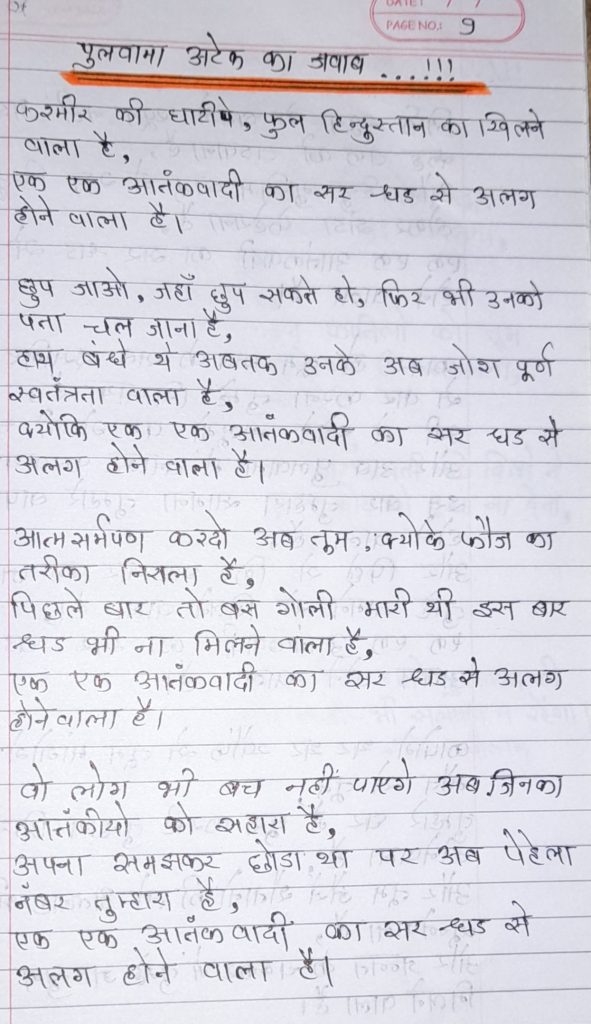 DATE: / /
PAGE NO.: 9
पुलवामा अटेक का जवाब ...!!!
कश्मीर की घाटीपे, फुल हिन्दुस्तान का खिलने
वाला है,
एक एक आतंकवादी का सर धड से अलग
होने वाला है।
छुप जाओ, जहाँ छुप सकते हो, फिर भी उनको
पता चल जाना है,
हाथ बंधे थे अबतक उनके अब जोश पूर्ण
स्वतंत्रता वाला है,
क्योकि एक एक आतंकवादी का सर धड से
अलग होने वाला है।
आत्मसर्मपण करदो अब तूम, क्योके फौज का
तरीका निराला है,
पिछले बार तो बस गोली मारी थी इस बार
धड भी ना मिलने वाला है,
एक एक आतंकवादी का सर धड से अलग
होने वाला है।
वो लोग भी बच नहीं पाएगे अब जिनका
आतंकीयो को सहारा है,
अपना समझकर छोडा था पर अब पेहेला
नंबर तुम्हारा है,
एक एक आतंकवादी का सर धड से
अलग होने वाला है।